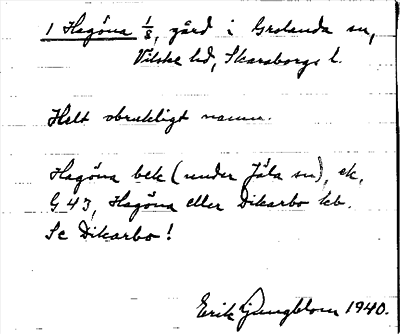 1 Hagöna 1/8, gård i Grolanda sn,
Vilske hd, Skaraborgs l.
Helt obrukligt namn.
Hagöna bek (under Jäla sn), ek.
G 43, Hagöna eller Dikarbo kb.
Se Dikarbo!
Erik Ljungblom 1940.